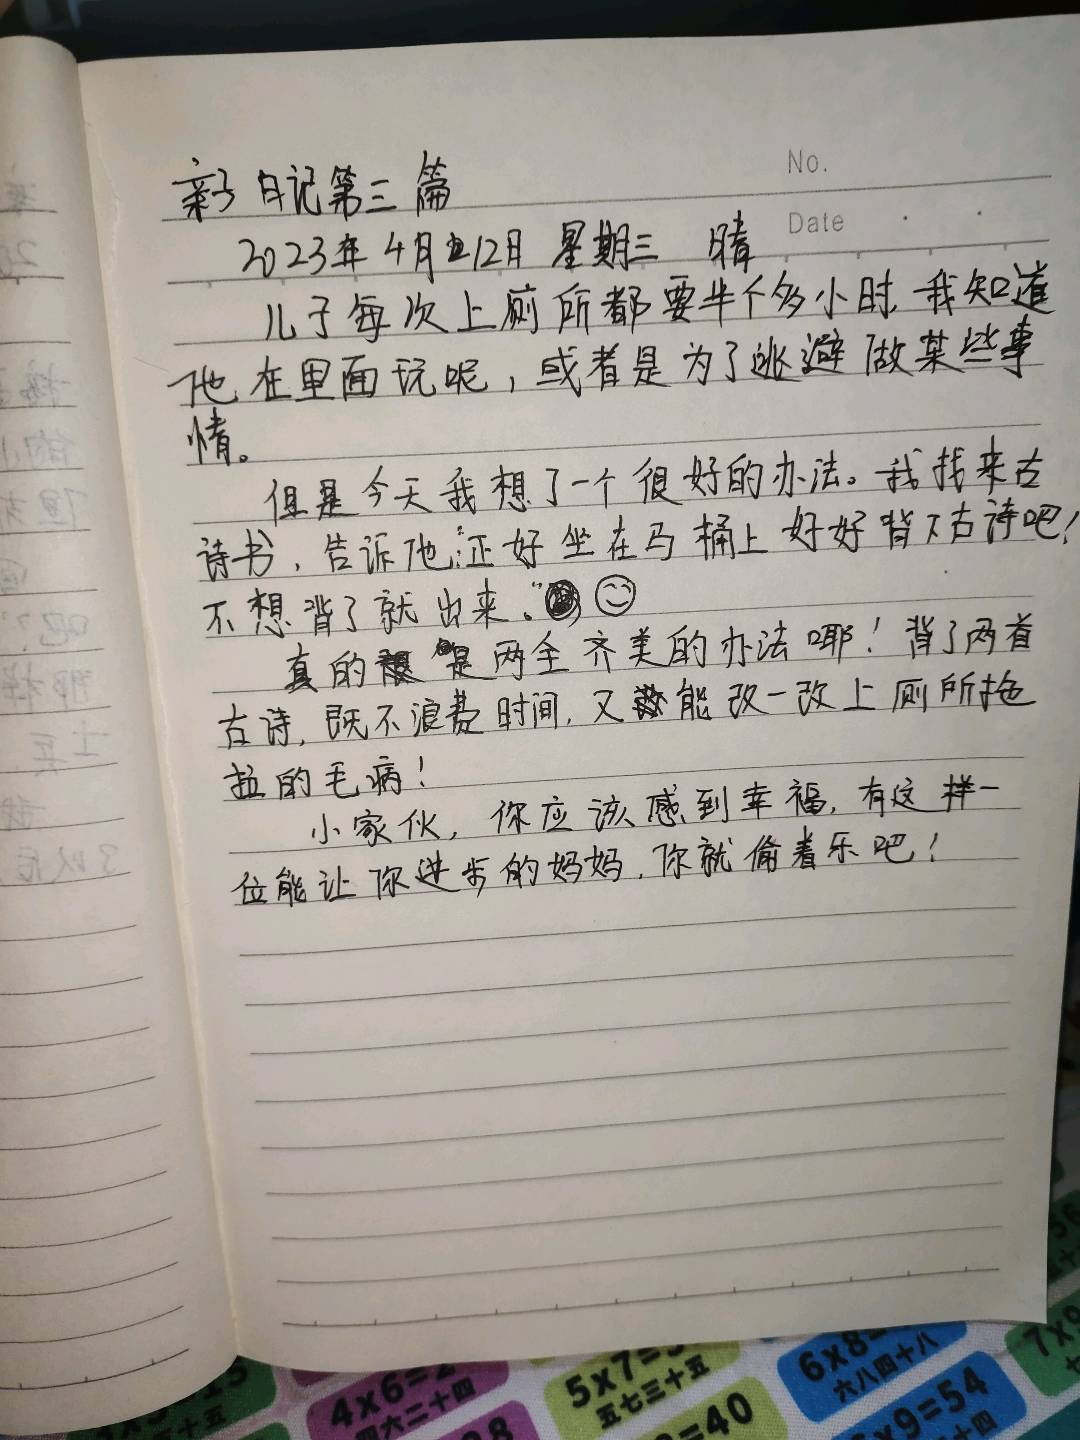 No.
亲子日记第三篇
Date
2023年4月12日 星期三 晴
儿子每次上厕所都要半个多小时,我知道
他在里面玩呢,或者是为了逃避做某些事
情。
但是今天我想了一个很好的办法。我找来古
诗书,告诉他:正好坐在马桶上好好背下古诗吧!
不想背了就出来。"
真的是两全齐美的办法哪!背了两首
古诗,既不浪费时间,又能改一改上厕所拖
拉的毛病!
小家伙,你应该感到幸福,有这样一
位能让你进步的妈妈,你就偷着乐吧!
4×6=2
四六二十四
5×7=3
五七三十五
6×8=
六八四十八
7×9
=40
×9=54